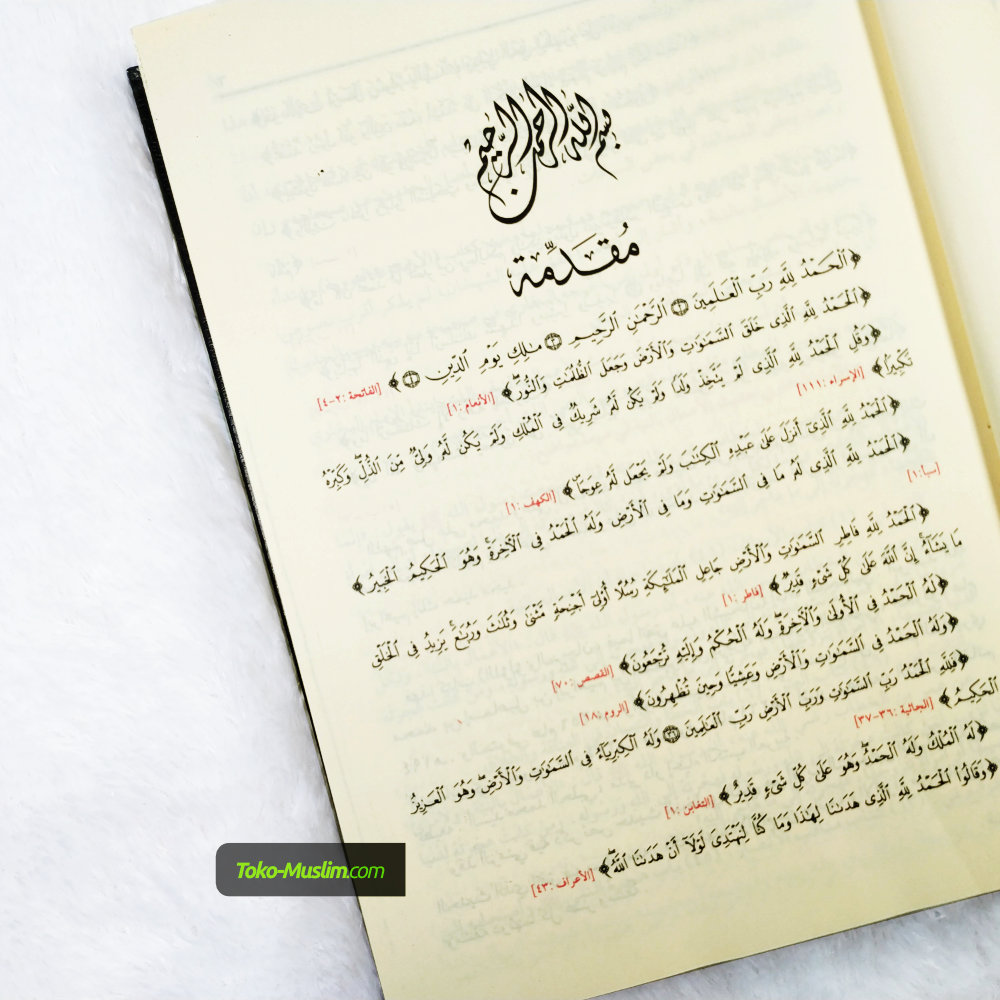 بسم الله الرحمن الرحيم
مُقَدِّمَة
﴿ٱلْحَمْدُ لِلَّهِ رَبِّ ٱلْعَٰلَمِينَ ۝٢ ٱلرَّحْمَٰنِ ٱلرَّحِيمِ ۝٣ مَٰلِكِ يَوْمِ ٱلدِّينِ ۝٤﴾ [الفاتحة: ٢-٤]
﴿ٱلْحَمْدُ لِلَّهِ ٱلَّذِى خَلَقَ ٱلسَّمَٰوَٰتِ وَٱلْأَرْضَ وَجَعَلَ ٱلظُّلُمَٰتِ وَٱلنُّورَ﴾ [الأنعام: ١]
﴿وَقُلِ ٱلْحَمْدُ لِلَّهِ ٱلَّذِى لَمْ يَتَّخِذْ وَلَدًا وَلَمْ يَكُن لَّهُۥ شَرِيكٌ فِى ٱلْمُلْكِ وَلَمْ يَكُن لَّهُۥ وَلِىٌّ مِّنَ ٱلذُّلِّ وَكَبِّرْهُ
تَكْبِيرًا﴾ [الإسراء: ١١١]
﴿ٱلْحَمْدُ لِلَّهِ ٱلَّذِىٓ أَنزَلَ عَلَىٰ عَبْدِهِ ٱلْكِتَٰبَ وَلَمْ يَجْعَل لَّهُۥ عِوَجَا﴾ [الكهف: ١]
﴿ٱلْحَمْدُ لِلَّهِ ٱلَّذِى لَهُۥ مَا فِى ٱلسَّمَٰوَٰتِ وَمَا فِى ٱلْأَرْضِ وَلَهُ ٱلْحَمْدُ فِى ٱلْءَاخِرَةِ وَهُوَ ٱلْحَكِيمُ ٱلْخَبِيرُ﴾
[سبأ: ١]
﴿ٱلْحَمْدُ لِلَّهِ فَاطِرِ ٱلسَّمَٰوَٰتِ وَٱلْأَرْضِ جَاعِلِ ٱلْمَلَٰٓئِكَةِ رُسُلًا أُو۟لِىٓ أَجْنِحَةٍ مَّثْنَىٰ وَثُلَٰثَ وَرُبَٰعَ يَزِيدُ فِى ٱلْخَلْقِ
مَا يَشَآءُ إِنَّ ٱللَّهَ عَلَىٰ كُلِّ شَىْءٍ قَدِيرٌ﴾ [فاطر: ١]
﴿لَهُ ٱلْحَمْدُ فِى ٱلْأُولَىٰ وَٱلْءَاخِرَةِ وَلَهُ ٱلْحُكْمُ وَإِلَيْهِ تُرْجَعُونَ﴾ [القصص: ٧٠]
﴿وَلَهُ ٱلْحَمْدُ فِى ٱلسَّمَٰوَٰتِ وَٱلْأَرْضِ وَعَشِيًّا وَحِينَ تُظْهِرُونَ﴾ [الروم: ١٨]
﴿فَلِلَّهِ ٱلْحَمْدُ رَبِّ ٱلسَّمَٰوَٰتِ وَرَبِّ ٱلْأَرْضِ رَبِّ ٱلْعَٰلَمِينَ ۝٣٦ وَلَهُ ٱلْكِبْرِيَآءُ فِى ٱلسَّمَٰوَٰتِ وَٱلْأَرْضِ وَهُوَ ٱلْعَزِيزُ
ٱلْحَكِيمُ﴾ [الجاثية: ٣٦-٣٧]
﴿لَهُ ٱلْمُلْكُ وَلَهُ ٱلْحَمْدُ وَهُوَ عَلَىٰ كُلِّ شَىْءٍ قَدِيرٌ﴾ [التغابن: ١]
﴿وَقَالُوا۟ ٱلْحَمْدُ لِلَّهِ ٱلَّذِى هَدَىٰنَا لِهَٰذَا وَمَا كُنَّا لِنَهْتَدِىَ لَوْلَآ أَنْ هَدَىٰنَا ٱللَّهُ﴾ [الأعراف: ٤٣]
Toko-Muslim.com